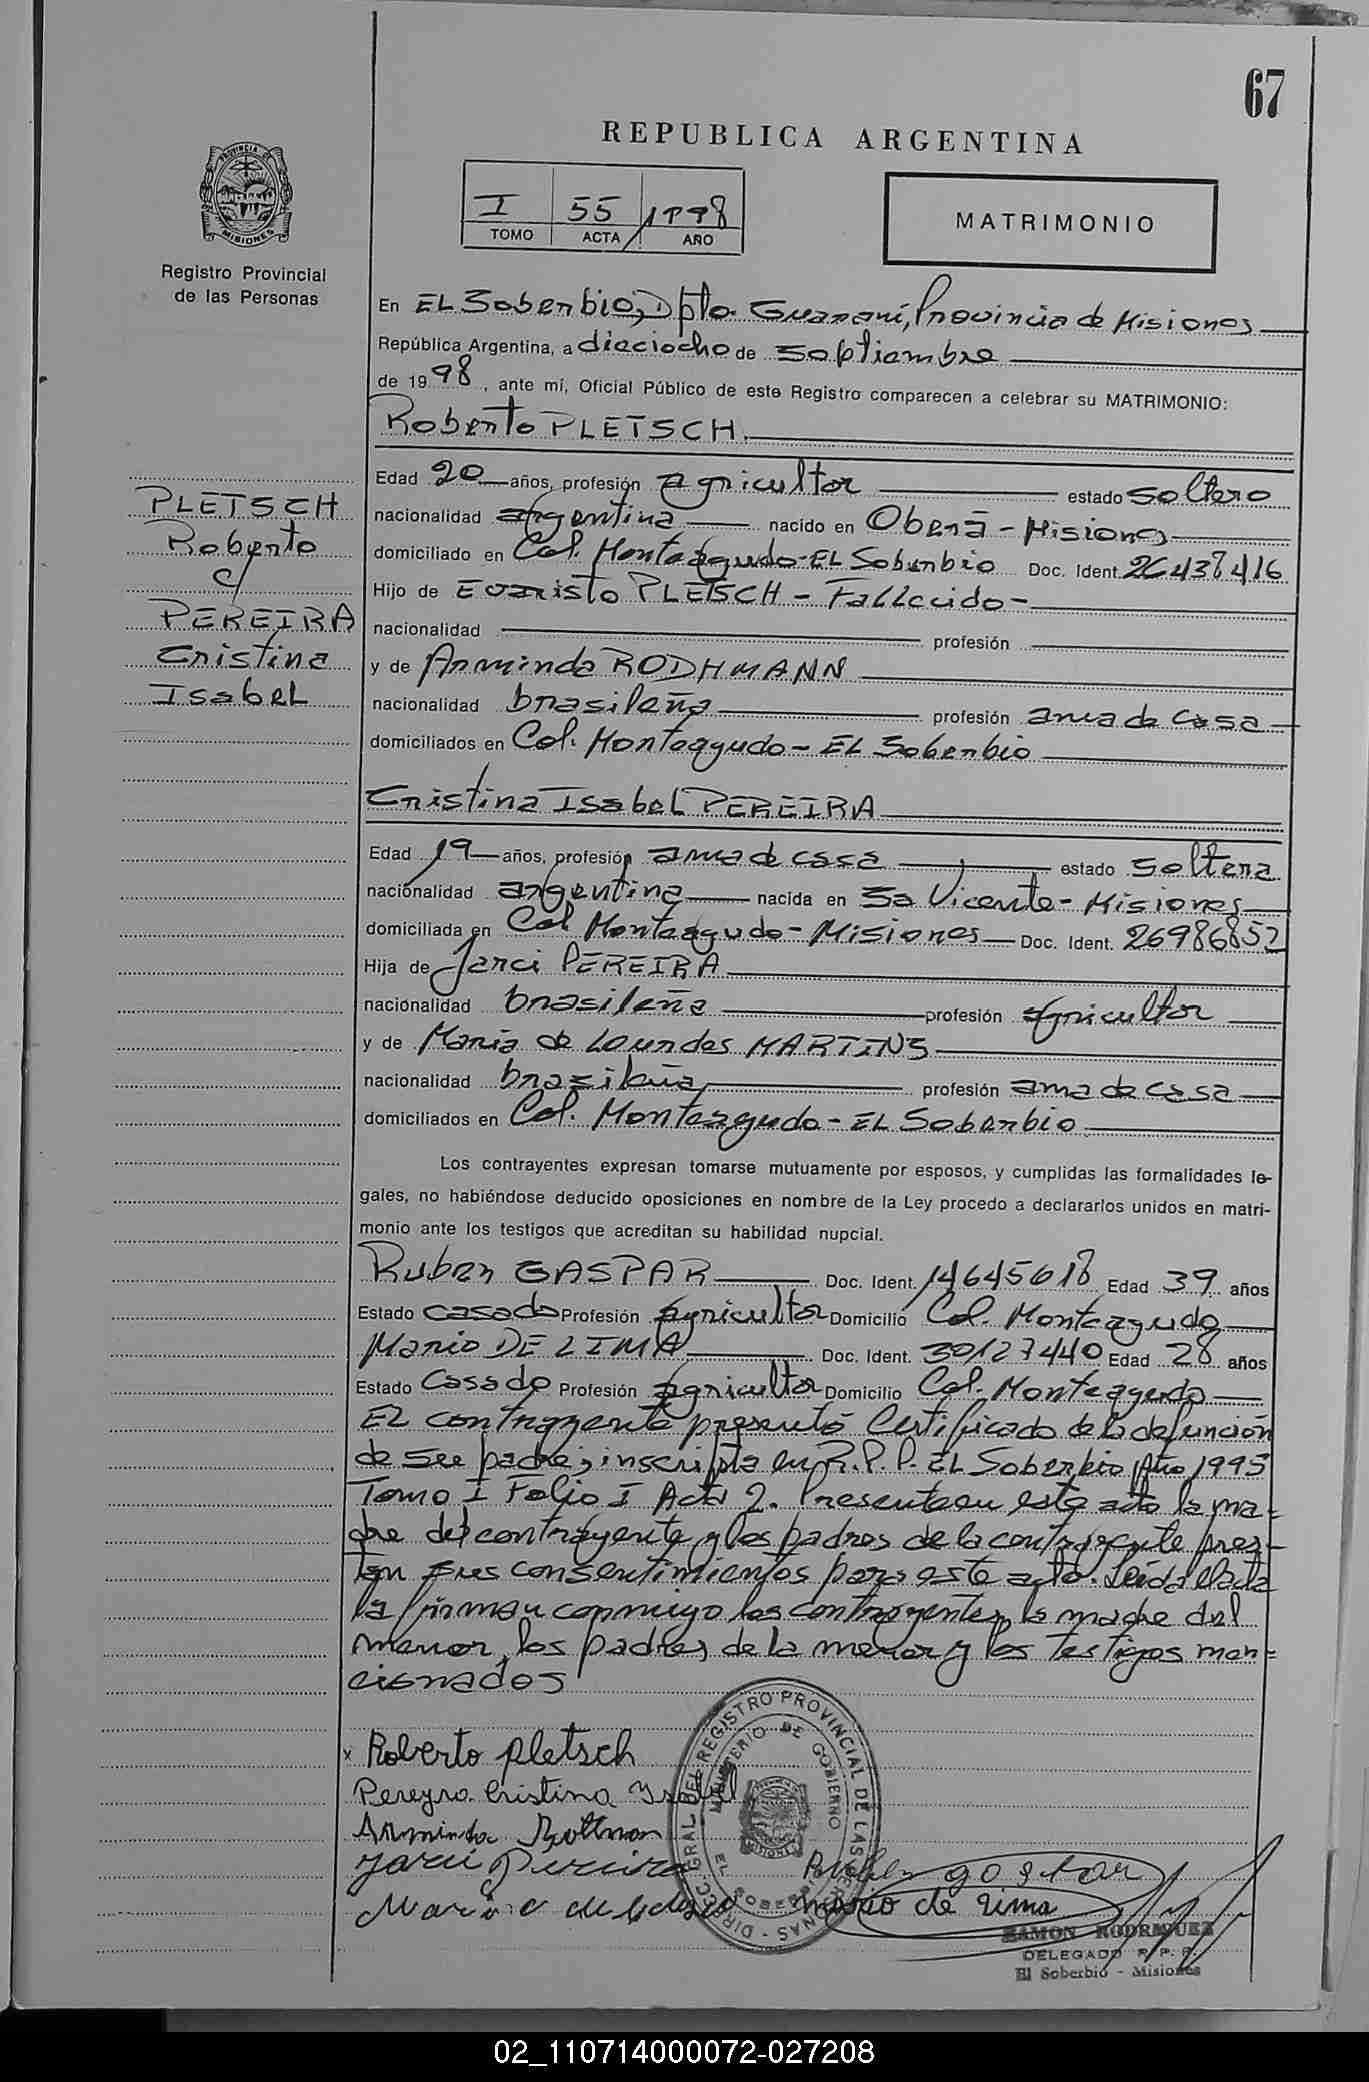 67
REPUBLICA ARGENTINA
I 55 1998
TOMO ACTA AÑO
MATRIMONIO
PROVINCIA DE
MISIONES
Registro Provincial
de las Personas
En EL Soberbio, Dpto. Guaraní, Provincia de Misiones
República Argentina, a dieciocho de Septiembre
de 1998, ante mí, Oficial Público de este Registro comparecen a celebrar su MATRIMONIO:
Roberto PLETSCH.
Edad 20 años, profesión agricultor estado soltero
nacionalidad argentina nacido en Oberá - Misiones
domiciliado en Col. Monteagudo - EL Soberbio Doc. Ident. 26438416
Hijo de Evaristo PLETSCH - Fallecido -
nacionalidad profesión
y de Arminda RODHMANN
nacionalidad brasileña profesión ama de casa
domiciliados en Col. Monteagudo - EL Soberbio
PLETSCH
Roberto
c/
PEREIRA
Cristina
Isabel
Cristina Isabel PEREIRA
Edad 19 años, profesión ama de casa estado soltera
nacionalidad argentina nacida en Sa Vicente - Misiones
domiciliada en Col Monteagudo - Misiones Doc. Ident. 26986852
Hija de Jarci PEREIRA
nacionalidad brasileña profesión agricultor
y de Maria de Lourdes MARTINS
nacionalidad brasileña profesión ama de casa
domiciliados en Col. Monteagudo - EL Soberbio
Los contrayentes expresan tomarse mutuamente por esposos, y cumplidas las formalidades le-
gales, no habiéndose deducido oposiciones en nombre de la Ley procedo a declararlos unidos en matri-
monio ante los testigos que acreditan su habilidad nupcial.
Ruben GASPAR Doc. Ident. 14645618 Edad 39 años
Estado casado Profesión agricultor Domicilio Col. Monteagudo
Mario DE LIMA Doc. Ident. 30127440 Edad 28 años
Estado Casado Profesión agricultor Domicilio Col. Monteagudo
EL contrayente presentó Certificado de la defunción
de su padre, inscripta en R.P.P. EL Soberbio Año 1995
Tomo I Folio I Acta 2. Presente en este acto la ma=
dre del contrayente y los padres de la contrayente pres-
tan sus consentimientos para este acto. Leída el acta
la firman conmigo los contrayentes, la madre del
menor, los padres de la menor y los testigos men=
cionados
x Roberto pletsch
Pereyra Cristina Ysabel
Arminda Rottman
Jarci Pereira
Maria de
Ruben gaspar
mario de lima
DIRECC. GRAL. DEL REGISTRO PROVINCIAL DE LAS PERSONAS
MINISTERIO DE GOBIERNO
EL SOBERBIO
MISIONES
RAMON RODRIGUEZ
DELEGADO R. P. P.
El Soberbio - Misiones
02_110714000072-027208